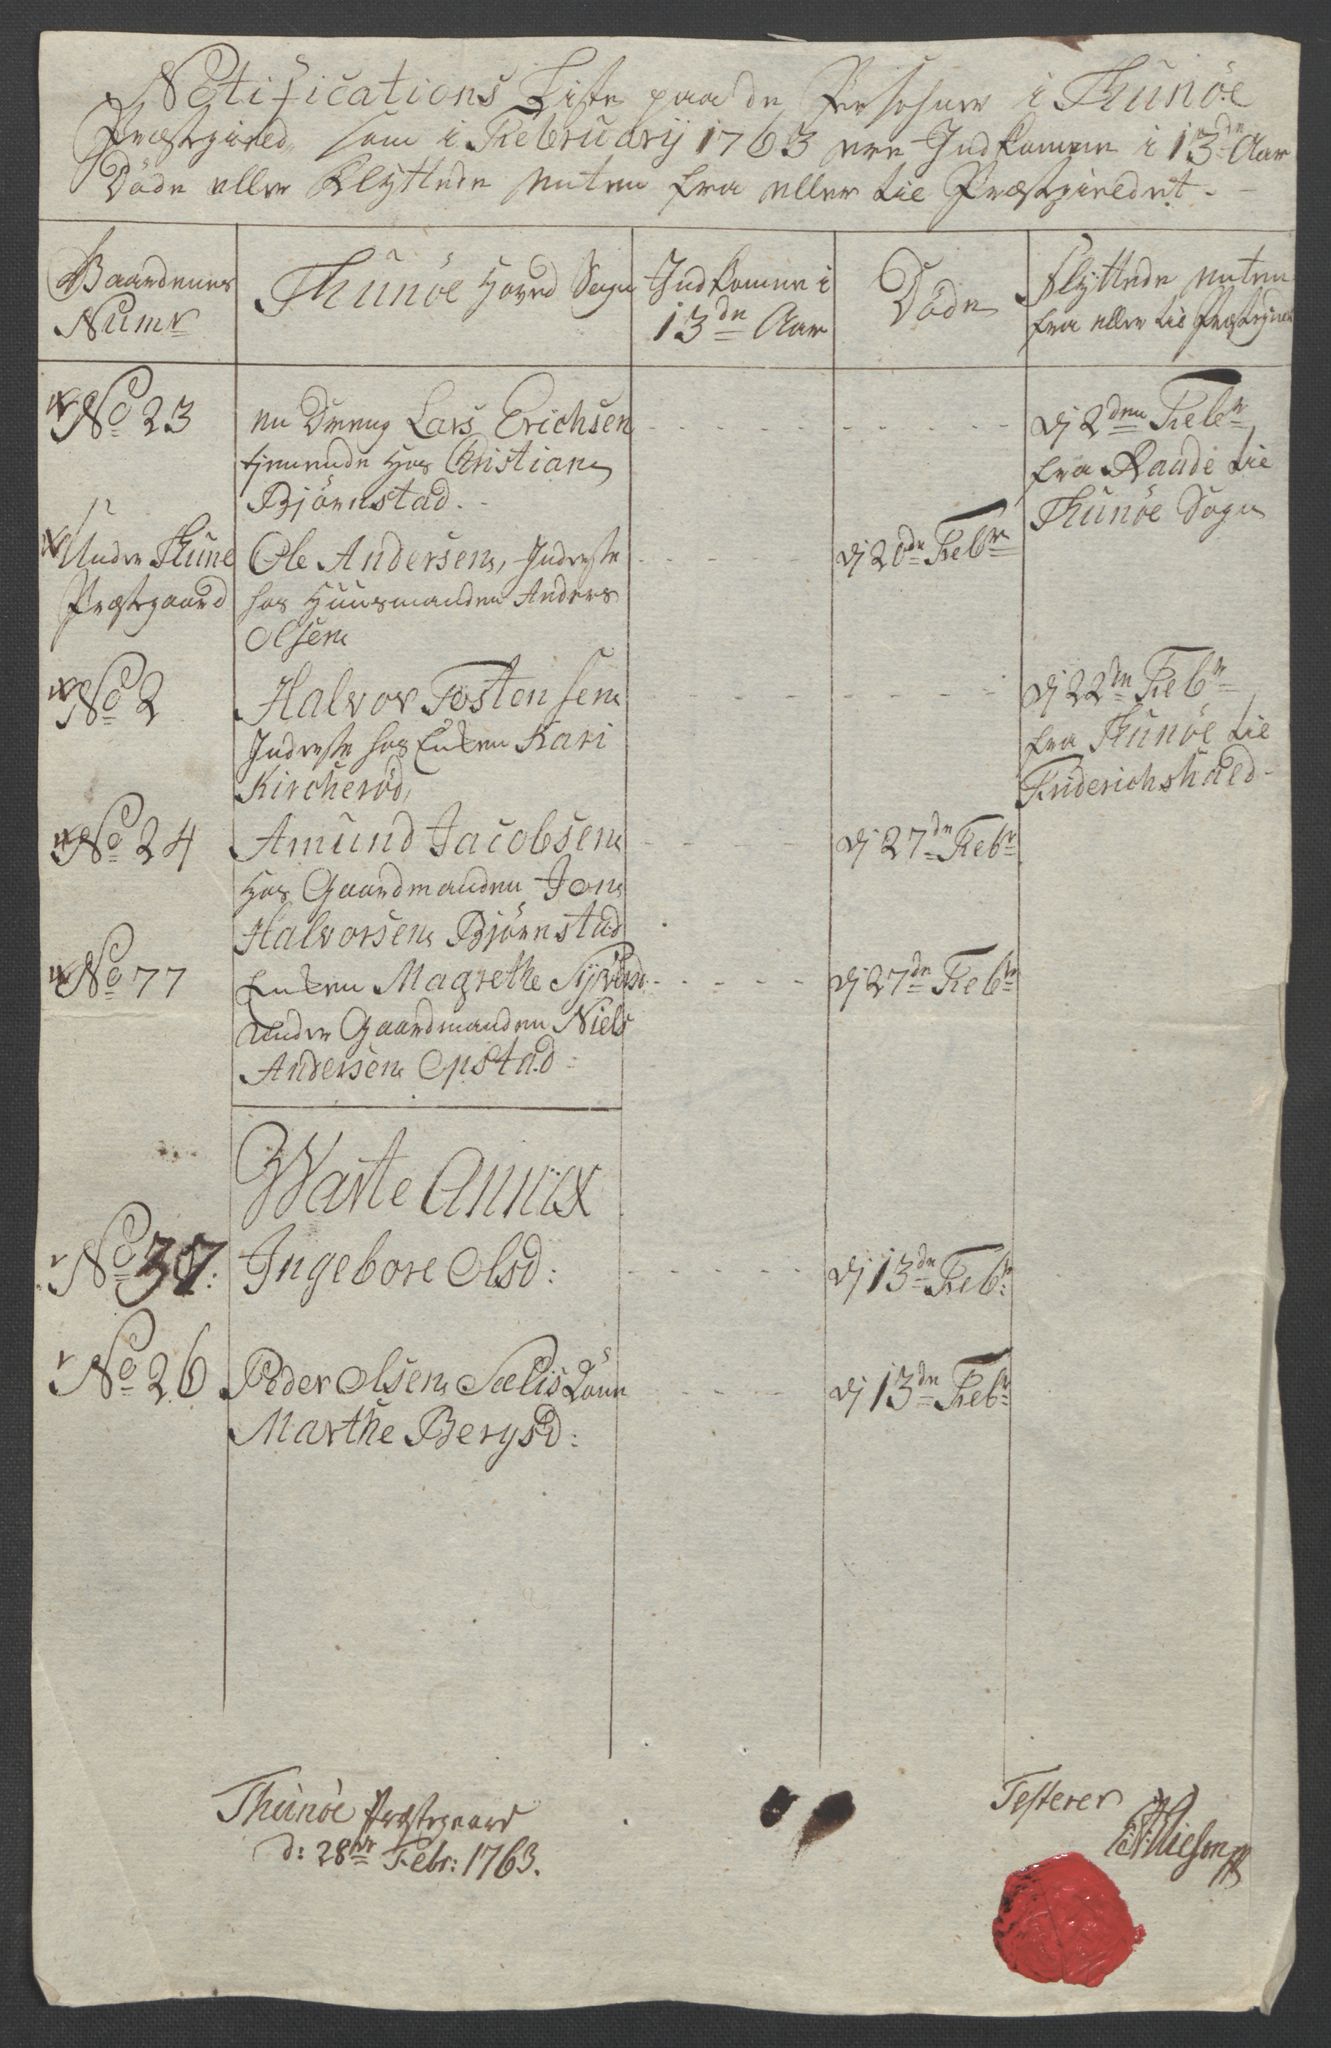 Notifications Liste paa de Persohner i Thunöe
Præstegield, som i Februarij 1763 ere Indkomne i 13de Aar
Döde eller Flyttede enten fra eller til Præstegieldet.
Gaardenes
Numr
Thunöe Hoved Sogn
Indkomne i
13de Aar
Döde
Flyttede enten
fra eller til Præstegield
No 23
en Dreng Lars Erichsen
tienende hos Christian
Björnstad.
dj 2den Febr
fra Raade til
Thunöe Sogn
Under Thune
Præstegaard
Ole Andersen, Inderste
hos Huusmanden Anders
Olsen
dj 20de Febr
No 2
Halvor Tostensen
Inderste hos Enken Kari
Kircheröd,
dj 22de Febr
fra Thunöe til
Friderichshald
No 24
Amund Jacobsen
hos Gaardmanden Jon
Halvorsen Björnstad
dj 27de Febr
No 77
Enken Magrethe Syversd
under Gaardmanden Niels
Andersen Opstad:
dj 27de Febr
Warte Annix
No 37:
Ingebore Olsd:
dj 13de Febr:
No 26
Peder Olsen Sælis Kone
Marthe Bergsd:
dj 13de Febr:
Thunöe Præstegaard
d: 28de Febr: 1763.
Testerer